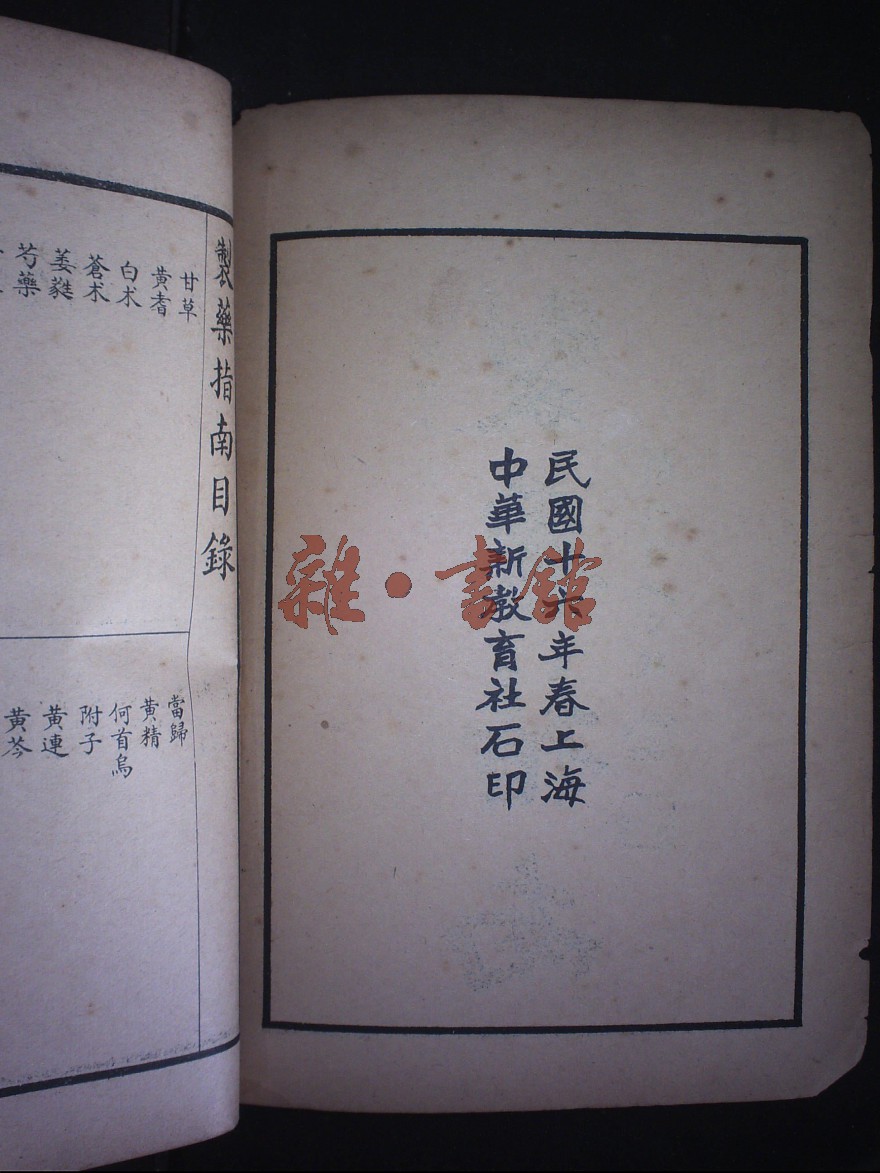 民國十六年春上海
中華新教育社石印
製藥指南目錄
甘草
黃耆
白朮
蒼朮
萎蕤
芍藥
當歸
黃精
何首烏
附子
黃連
黃芩
雜·書館